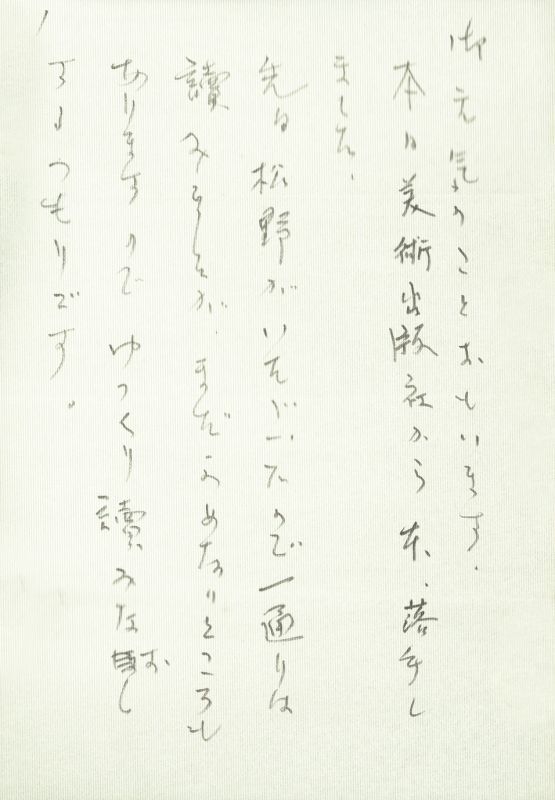 御元気のことおもいます、
本日美術出版社から本、落手し
ました、
先日松野がいただいたので一通りは
讀みましたが、まだよめないところも
ありますのでゆっくり讀みなおし
するつもりです。